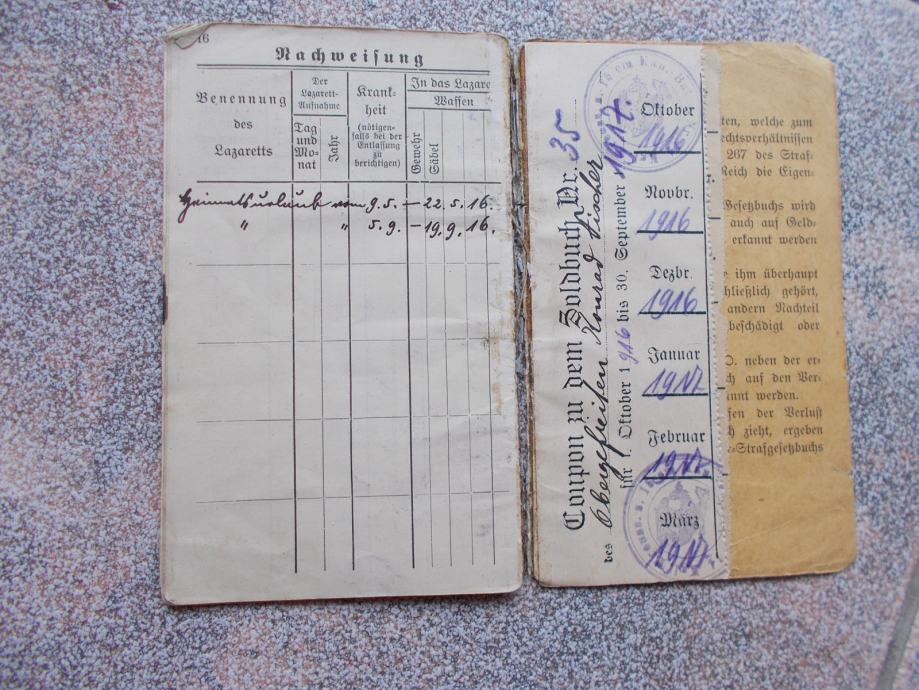 16
Nachweisung
Benennung
des
Lazaretts
Der
Lazarett-
Aufnahme
Tag
und
Mo-
nat
Jahr
Krank-
heit
(nötigen-
falls bei der
Entlassung
zu
berichtigen)
In das Lazare
Waffen
Gewehr
Säbel
Heimatsurlaub vom 9.5. – 22.5.16.
" " 5.9. – 19.9.16.
Coupon zu dem Soldbuch Nr. 35
des Obergefreiten Konrad Fischer
für 1. Oktober 1916 bis 30. September 1917.
Oktober
1916
Novbr.
1916
Dezbr.
1916
Januar
1917
Februar
1917
März
1917
ten, welche zum
echtsverhältnissen
267 des Straf-
Reich die Eigen-
Gesetzbuchs wird
auch auf Geld-
erkannt werden
e ihm überhaupt
chließlich gehört,
andern Nachteil
beschädigt oder
O. neben der er-
ch auf den Ver-
nnt werden.
fen der Verlust
h zieht, ergeben
-Strafgesetzbuchs